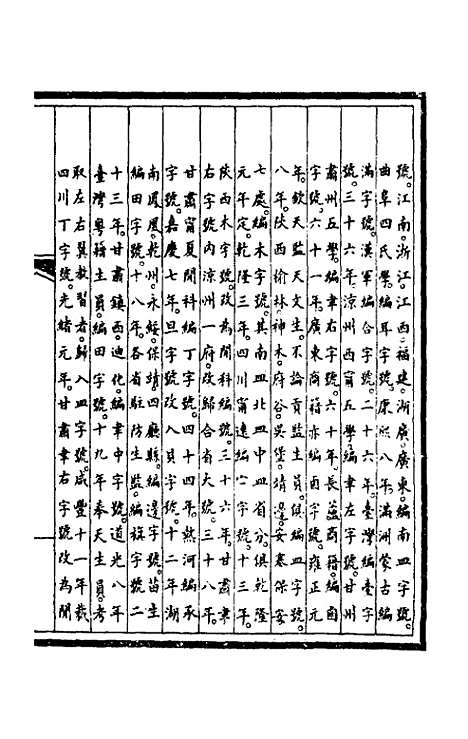 號。江南。浙江。江西。福建。湖廣。廣東。編南皿字號。
曲阜四氏學。編耳字號。康熙八年。滿洲蒙古編
滿字號。漢軍編合字號。二十六年。臺灣編臺字
號。三十六年。涼州西甯五學。編聿左字號。甘州
肅州五學。編聿右字號。六十年。長蘆商籍。編鹵
字號。六十一年。廣東商籍亦編鹵字號。雍正元
年。欽天監天文生。不論貢監生員。俱編皿字號。
八年。陝西榆林。神木。府谷。吳堡。靖邊。安塞。保安
七處。編木字號。其南皿北皿中皿省分。俱乾隆
元年定。乾隆三年。四川甯遠編字號。十三年。
陝西木字號。改為閒科編號。三十六年。甘肅聿
右字號內涼州一府。改歸合省大號。三十八年。
甘肅甯夏閒科編丁字號。四十四年。熱河編承
字號。嘉慶七年。旦字號改入貝字號。十二年。湖
南鳳凰。乾州。永綏。保靖四廳縣。編邊字號。苗生
編田字號。十八年。各省駐防生監。編旗字號。二
十三年。甘肅鎮西。迪化。編聿中字號。道光八年
臺灣粵籍生員。編田字號。十九年奉天生員。考
取左右翼教習者。歸入皿字號。咸豐十一年。裁
四川丁字號。光緒元年。甘肅聿右字號改為閒